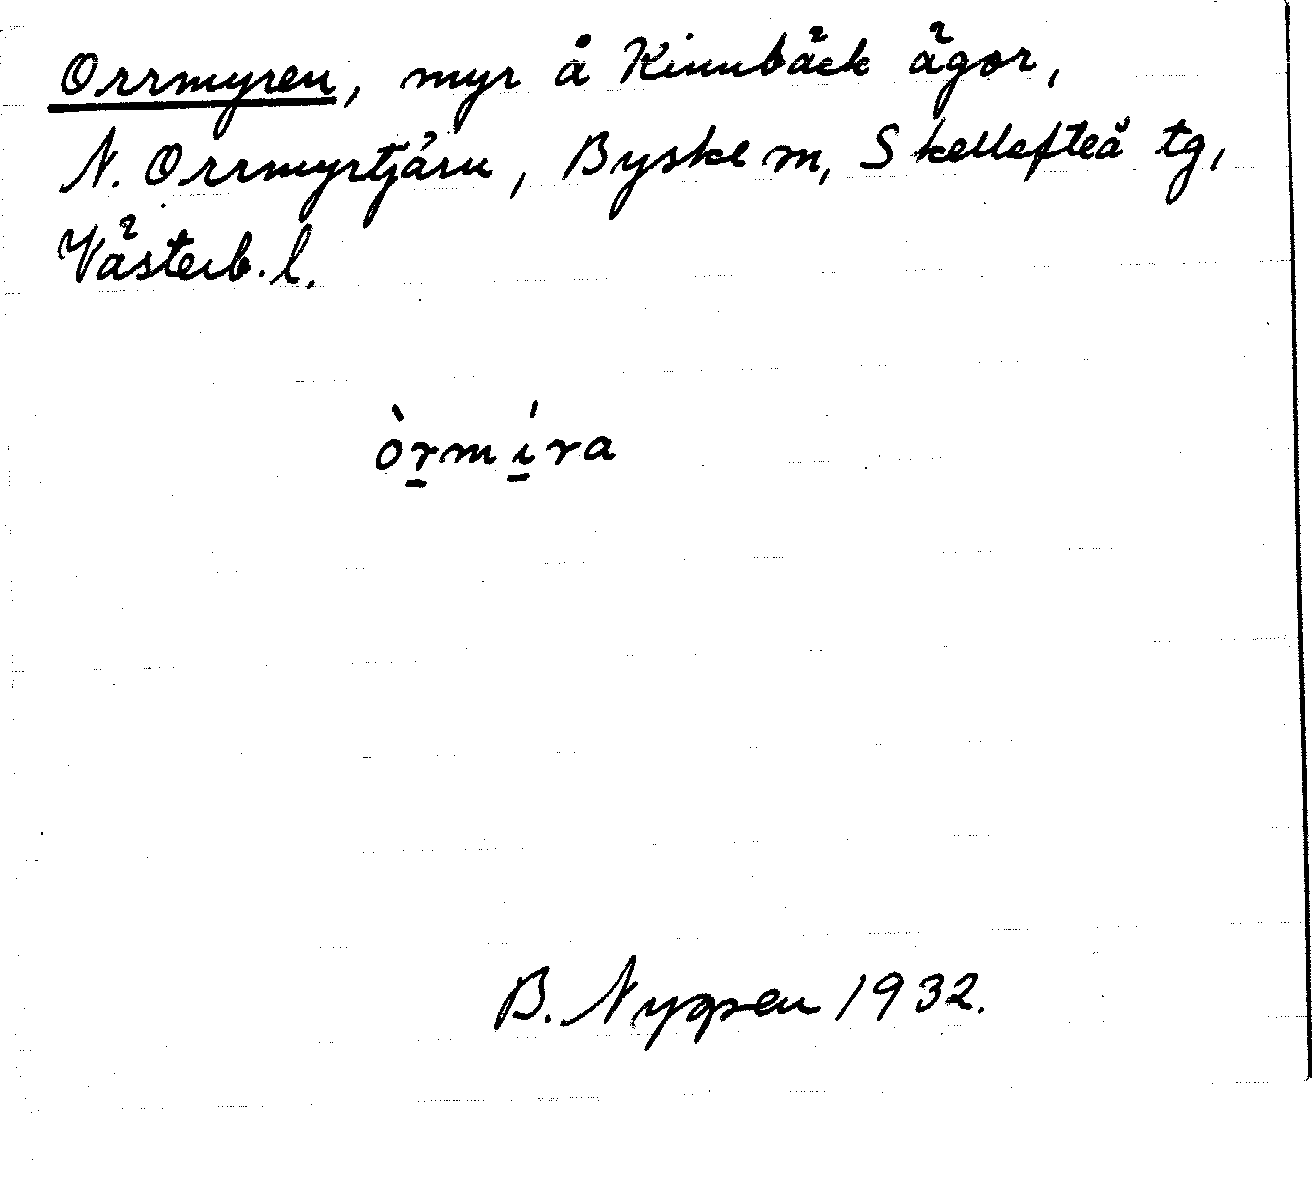 Orrmyren, myr å Kinnbäck ägor,
N. Orrmyrtjärn, Byske sn, Skellefteå tg,
Västerb. l.
òrmíra
B. Nygren 1932.